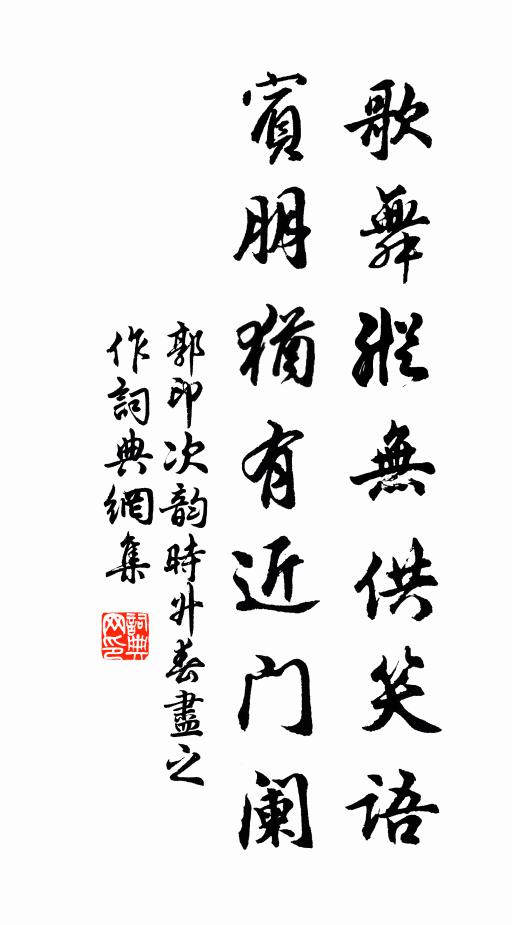 歌舞縱無供笑語
賓朋猶有近門闌
郭印次韵時升春盡之
作詞典網集
詞典网印